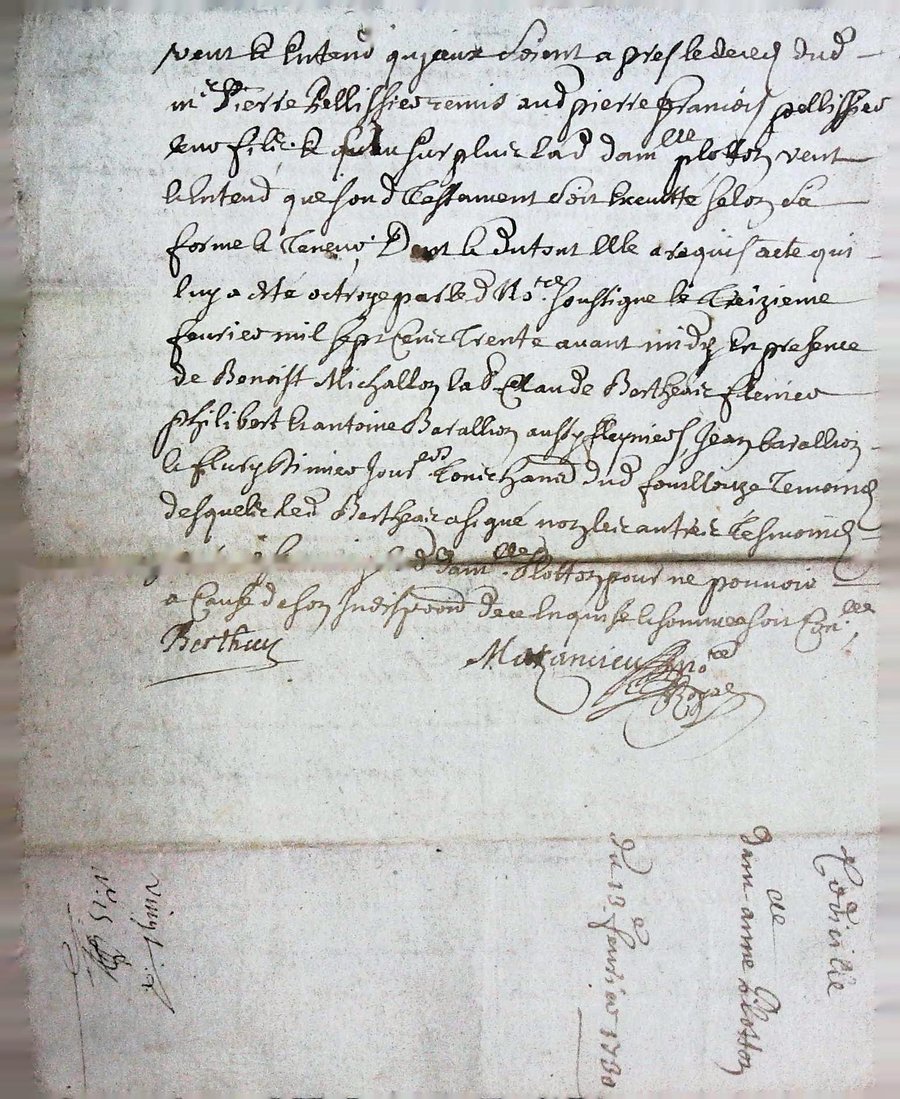 veut & entend qu'jceux soient apres le deced dud
mᵉ Pierre Pellissier remis aud pierre françois pellissier
leur fils & qu'au surplus lad damˡˡᵉ plotton veut
& entend que sond Testament soit executté selon sa
forme & Teneur, Dont & du tout Elle a requis acte qui
luy a été octroyé par led Noʳᵉ soussigné le Treizieme
feurier mil sept Cents Trente avant midy En presence
de Benoist Michallon lab. Claude Berthuis
philibert & antoine Barallion aussy Jean barallion
& fleury Jourˢ Touts hants dud fouillouze Temoins
desquels led Berthuis a signé non les autres Tesmoins
d damˡˡᵉ Plotton pour ne pouvoir
a Cause de son Indispõonᵈ de ce Enquise & sommée soit Conˡˡᵉ
Berthuis
Mazancieu noʳᵉ
Royal
Codicile
de
dam. anne plotton
du 13ᵉ feurier 1730
n° 15